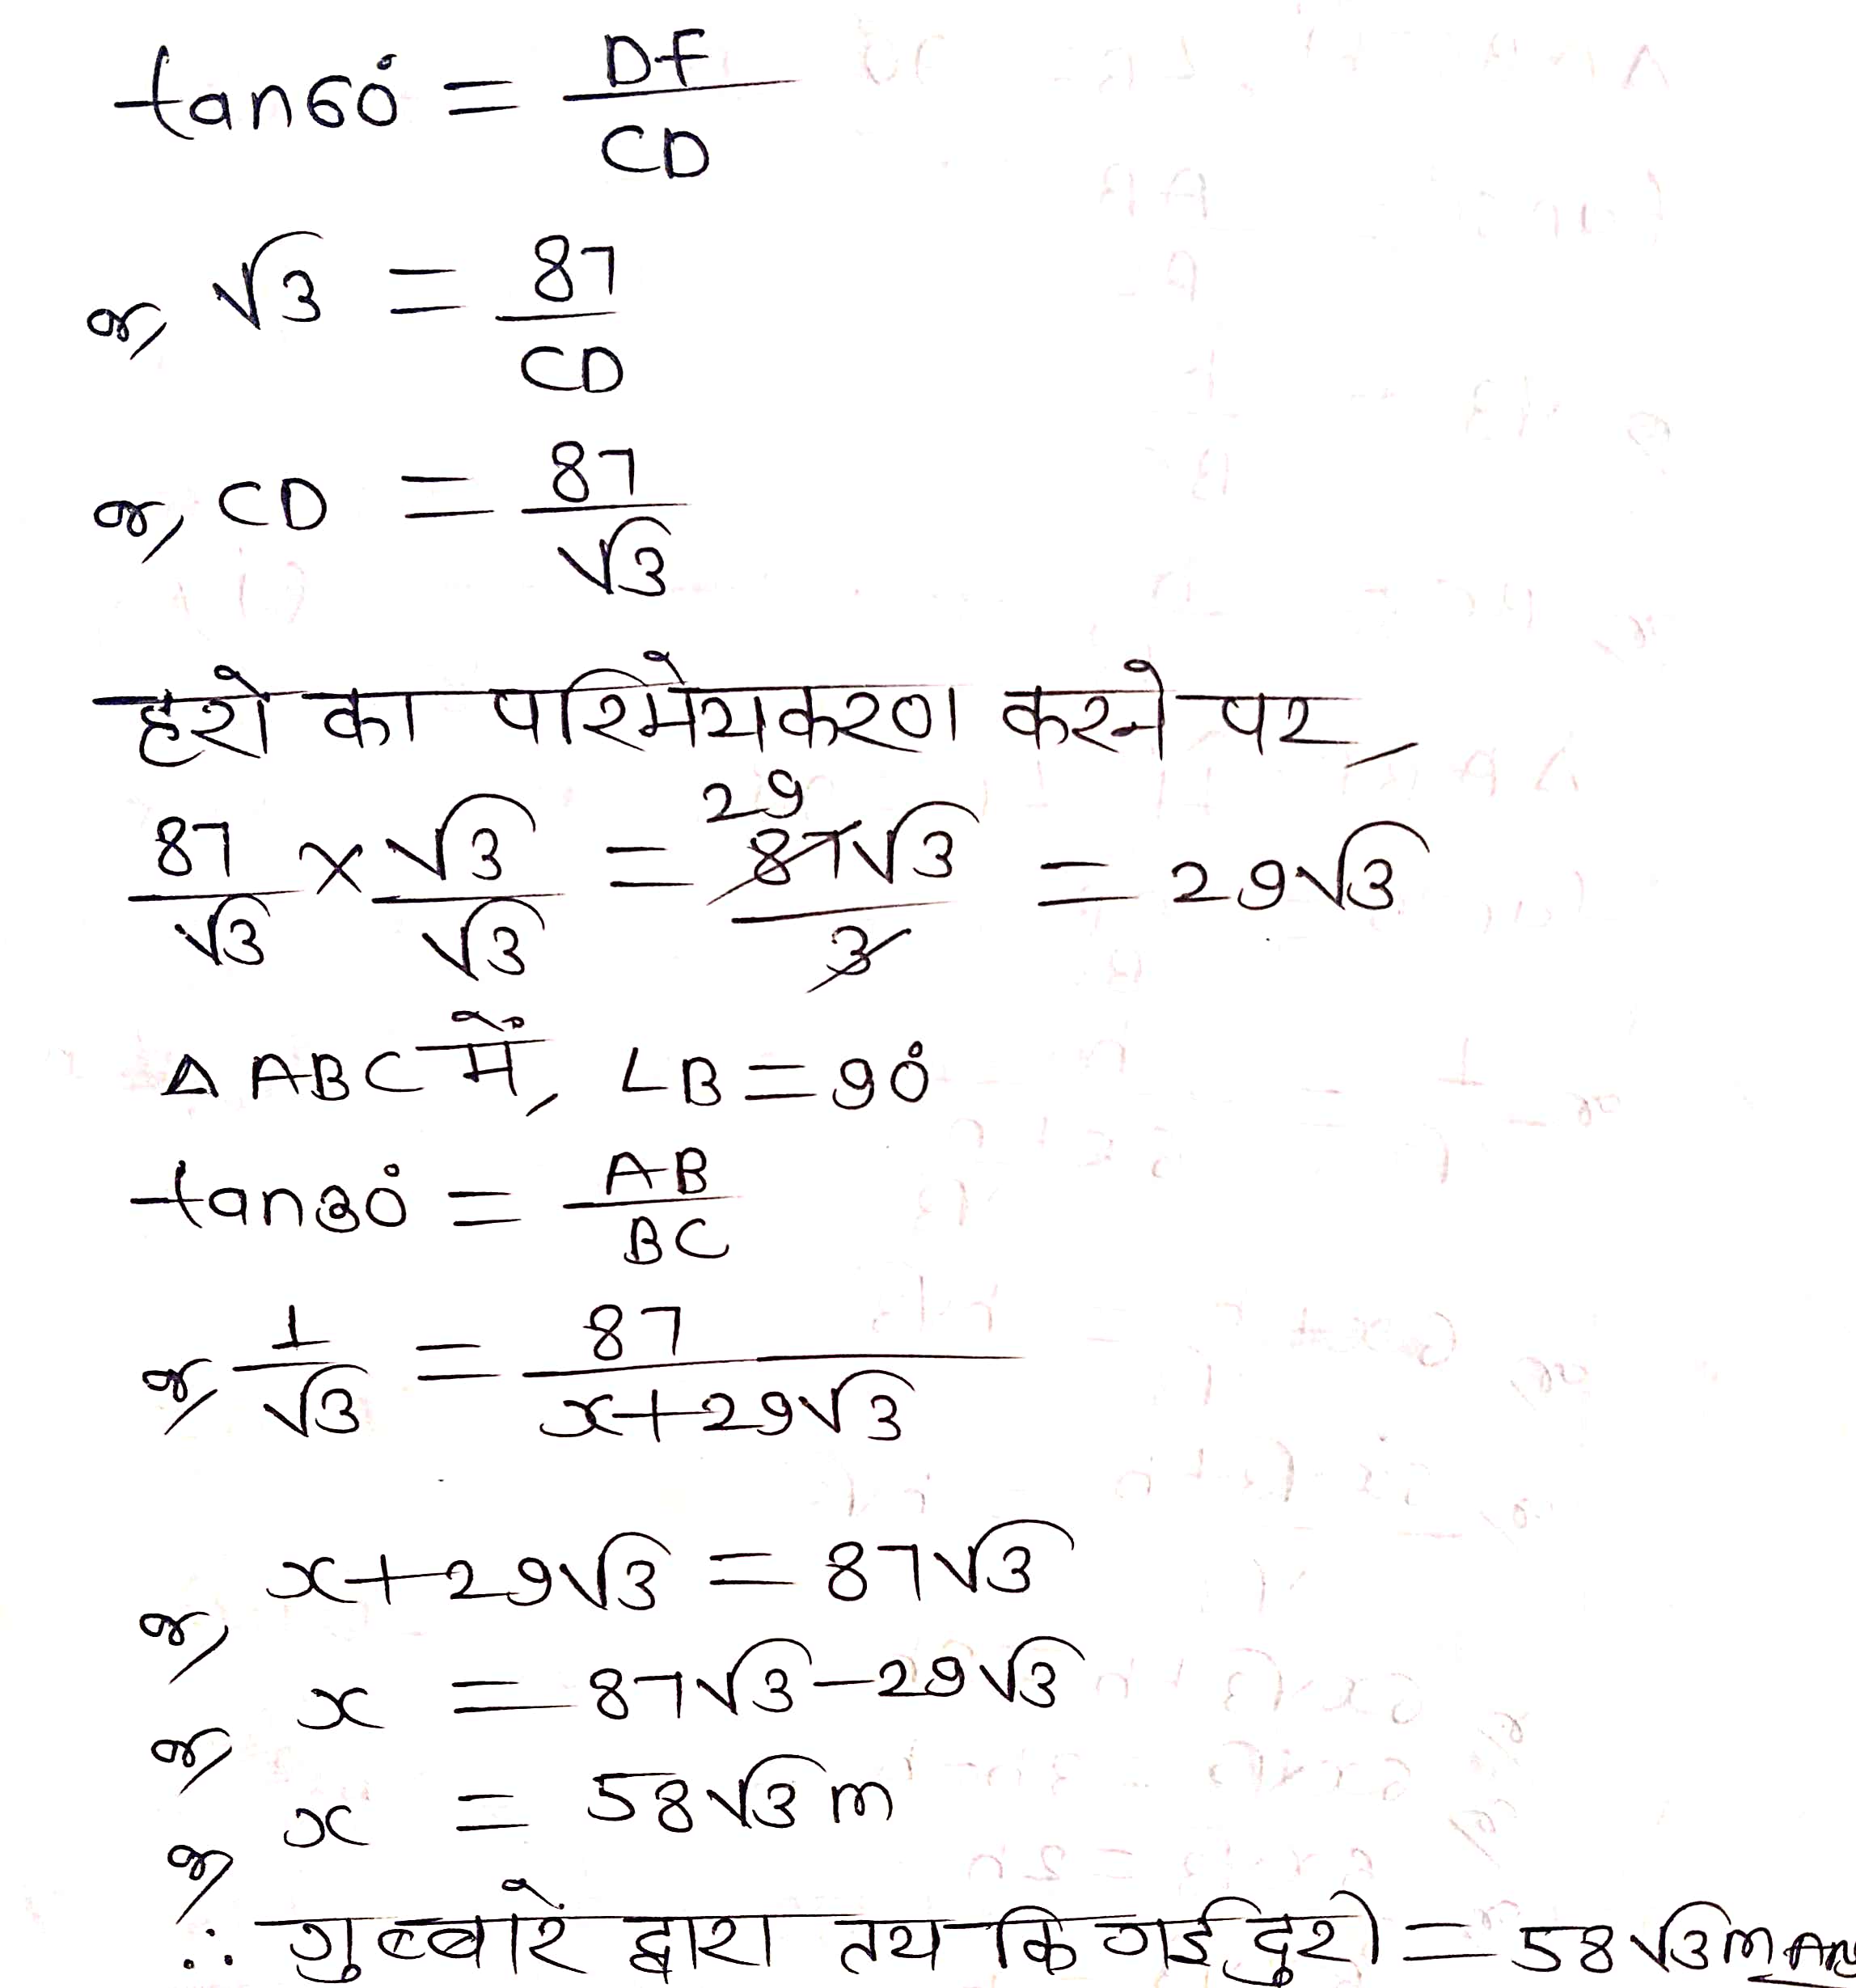 tan60° = DF/CD
or, √3 = 87/CD
or, CD = 87/√3
हरो का परिमेयकरण करने पर,
87/√3 × √3/√3 = 29 87√3/3 = 29√3
△ ABC में, ∠B = 90°
tan30° = AB/BC
or, 1/√3 = 87/x+29√3
or, x+29√3 = 87√3
or, x = 87√3-29√3
or, x = 58√3 m
∴ गुब्बारें द्वारा तय कि गई दुरी = 58√3 m Ans